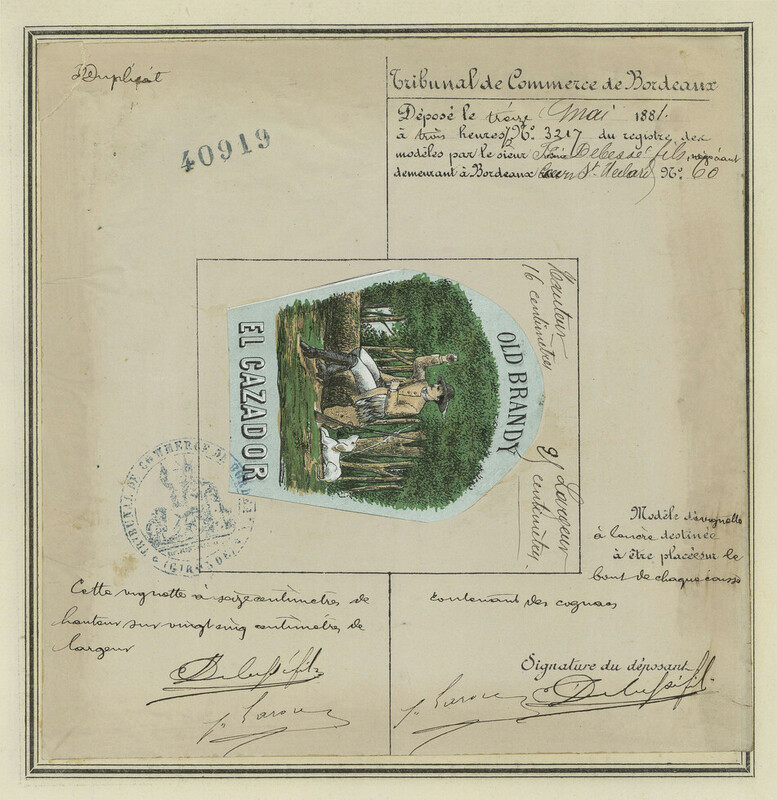 Duplicat
40919
Tribunal de Commerce de Bordeaux
Déposé le treize Mai 1881.
à trois heures, No. 3217 du registre des
modèles par le sieur Debessé fils, négociant
demeurant à Bordeaux Cours St. Médard No. 60
Hauteur
16 centimètres
OLD BRANDY
EL CAZADOR
Largeur
centimètres.
TRIBUNAL DE COMMERCE DE BORDEAUX
(GIRONDE)
Modèle de vignette
à l'encre destinée
à être placée sur le
bout de chaque caisse
contenant des cognacs
Cette vignette à seize centimètres de
hauteur sur vingt cinq centimètres de
largeur
Signature du déposant